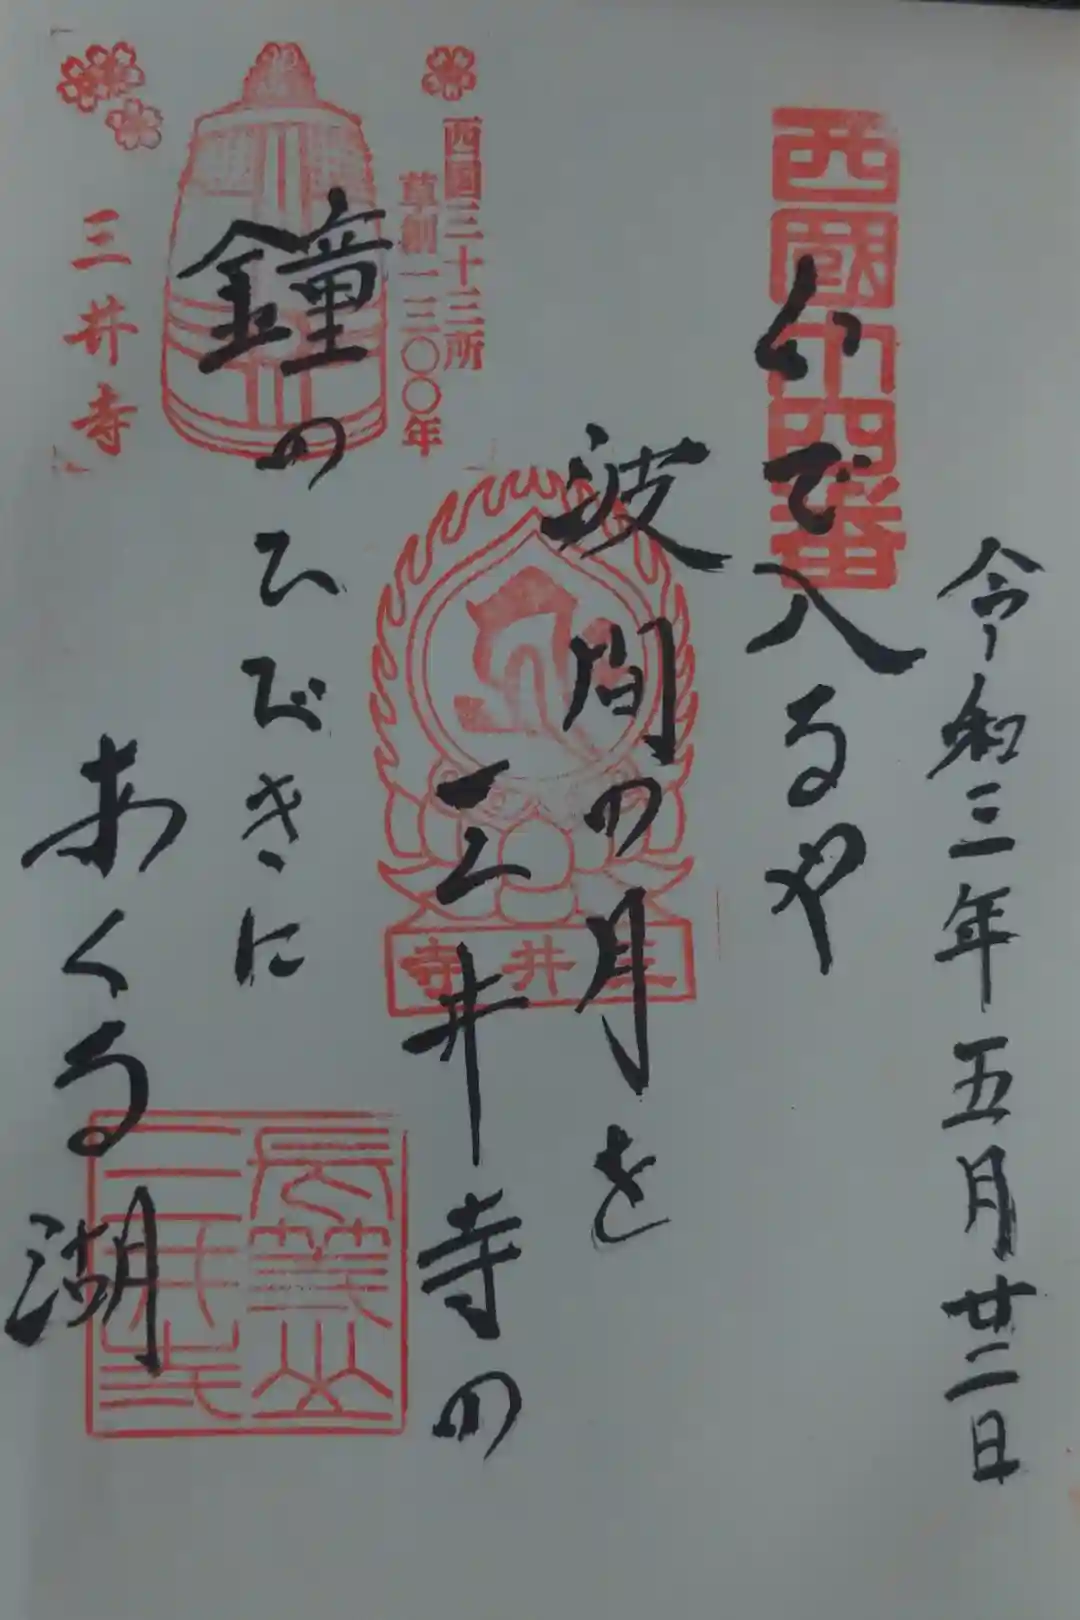 令和三年五月廿二日
西國十四番
いで入るや
波間の月を
三井寺の
鐘のひびきに
あくる湖
西国三十三所
草創一三〇〇年
三井寺
三井寺
長等山
三井寺